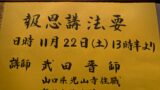 報恩講法要
日時 11月22日(土)13時半より
講師 武田晋師
山口県光山寺住職